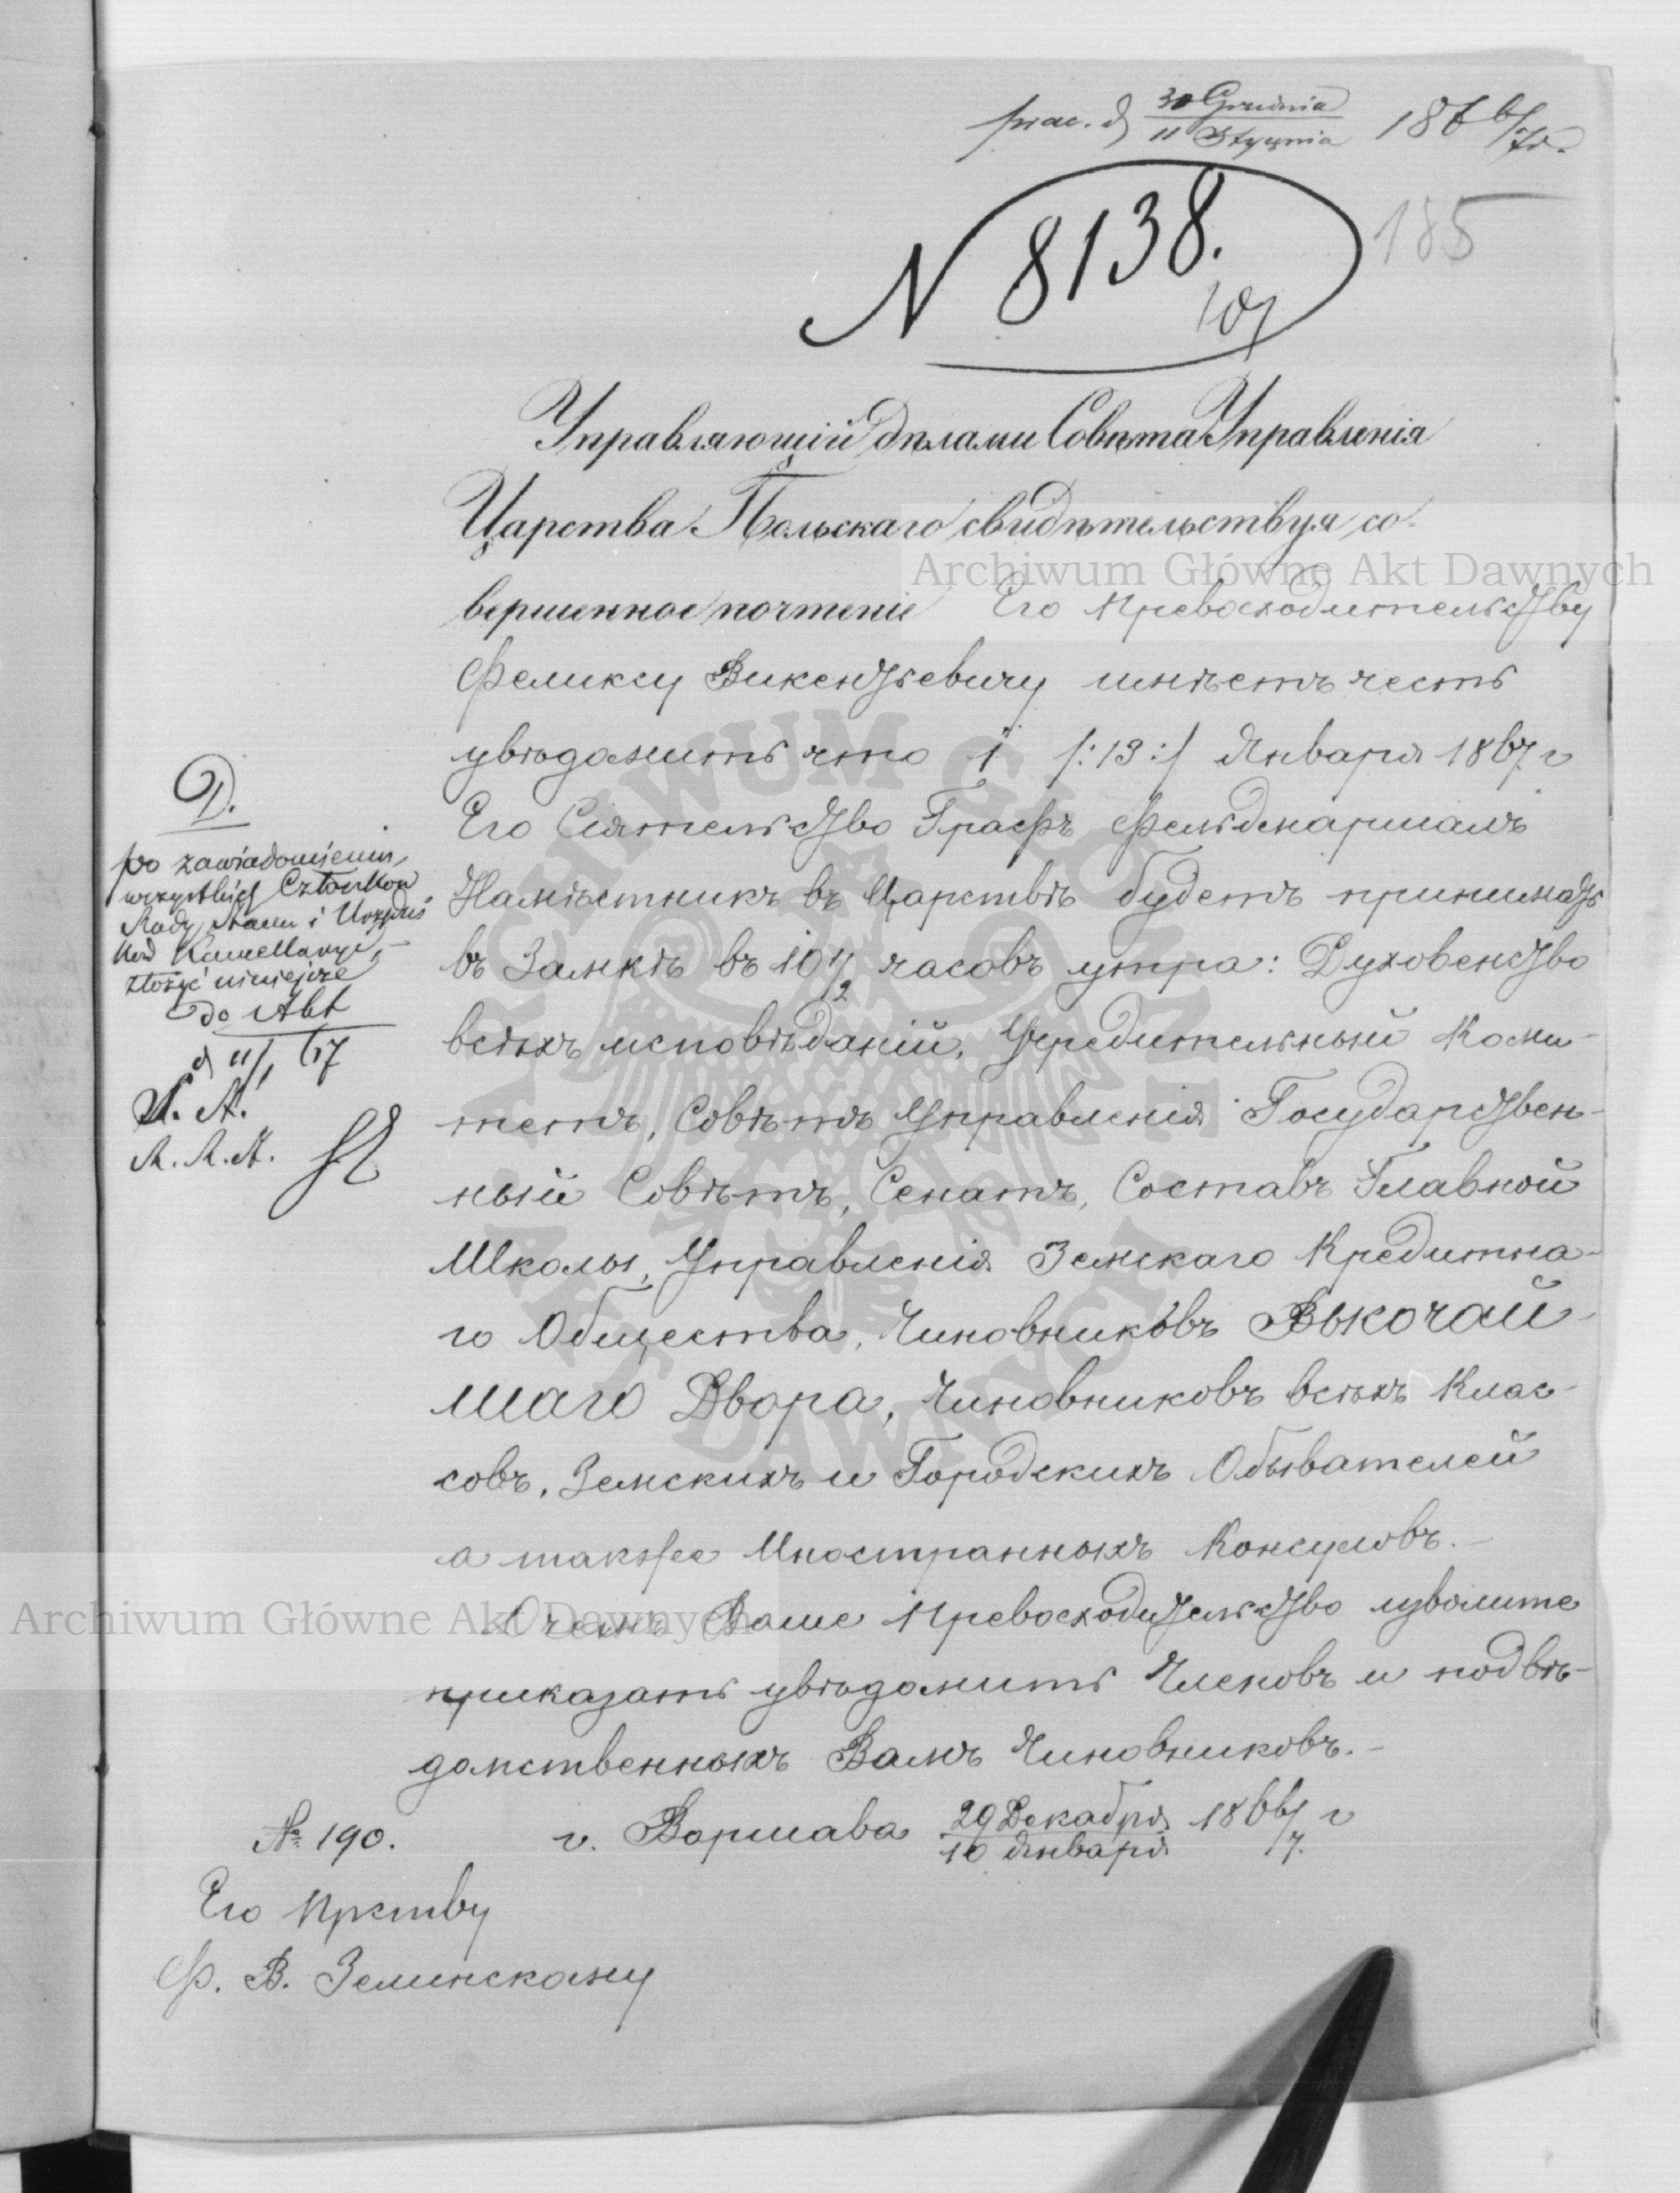 prac. d 30 Grudnia / 11 Stycznia 1866/7 r.
N 8138.
185
Управляющій дѣлами Совѣта Управленія
Царства Польскаго свидѣтельствуя со-
вершенное почтеніе Его Превосходительству
Феликсу Викентьевичу имѣетъ честь
увѣдомить что 1 /:13:/ Января 1867 г
Его Сіятельство Графъ Фельдмаршалъ
Намѣстникъ въ Царствѣ будетъ принимать
въ Замкѣ въ 10 1/2 часовъ утра: Духовенство
всѣхъ исповѣданій, Учредительный Коми-
тетъ, Совѣтъ Управленія Государствен-
ный Совѣтъ, Сенатъ, Составъ Главной
Школы, Управленія Земскаго Кредитна-
го Общества, Чиновниковъ Высочай-
шаго Двора, Чиновниковъ всѣхъ Клас-
совъ, Земскихъ и Городскихъ Обывателей
а также Иностранныхъ Консуловъ.-
О чемъ Ваше Превосходительство изволите
приказать увѣдомить Членовъ и подвѣ-
домственныхъ Вамъ Чиновниковъ.-
№ 190. г. Варшава 29 Декабря / 10 Января 1866/7. г
Его Прству
Ф. В. Зелинскому
D.
po zawiadomieniu
wszystkich Członków
Rady Stanu i Urzędni
ków Kancellaryi,
złożyć niniejsze
do Akt
d 11/1 67
Archiwum Główne Akt Dawnych
Archiwum Główne Akt Dawnych
ARCHIWUM GŁÓWNE AKT DAWNYCH